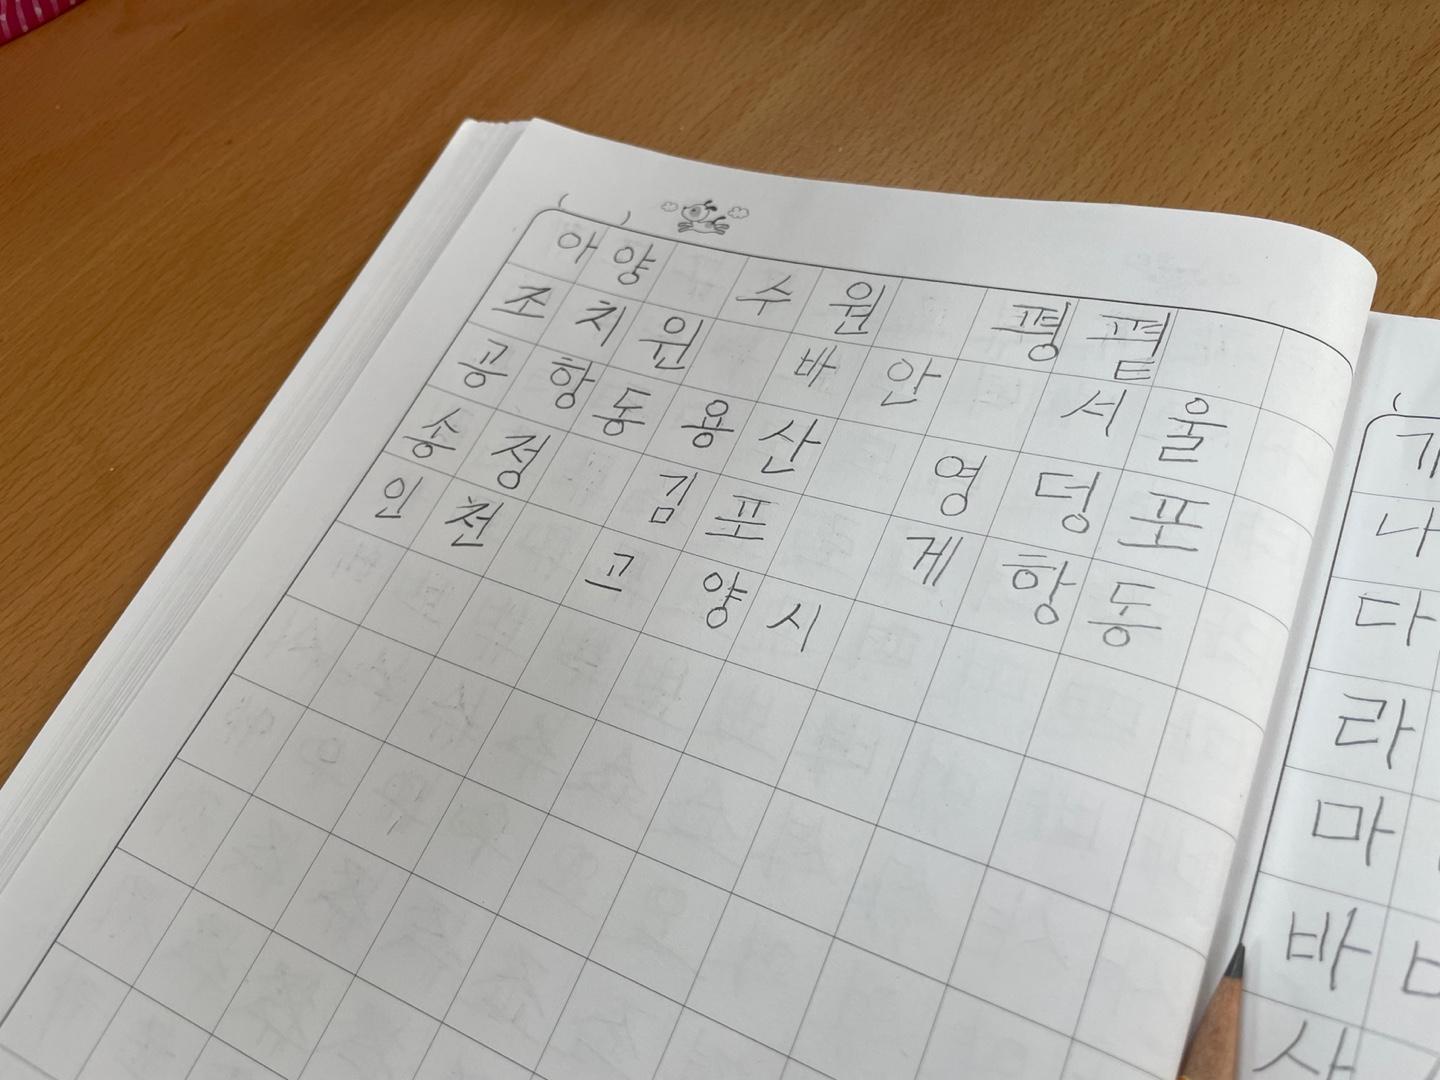 아양 수원 평펕
조치원 바안 서울
공항동 용산 영덩포
송정 김포 게항동
인천 고양시
나
다
라
마
바